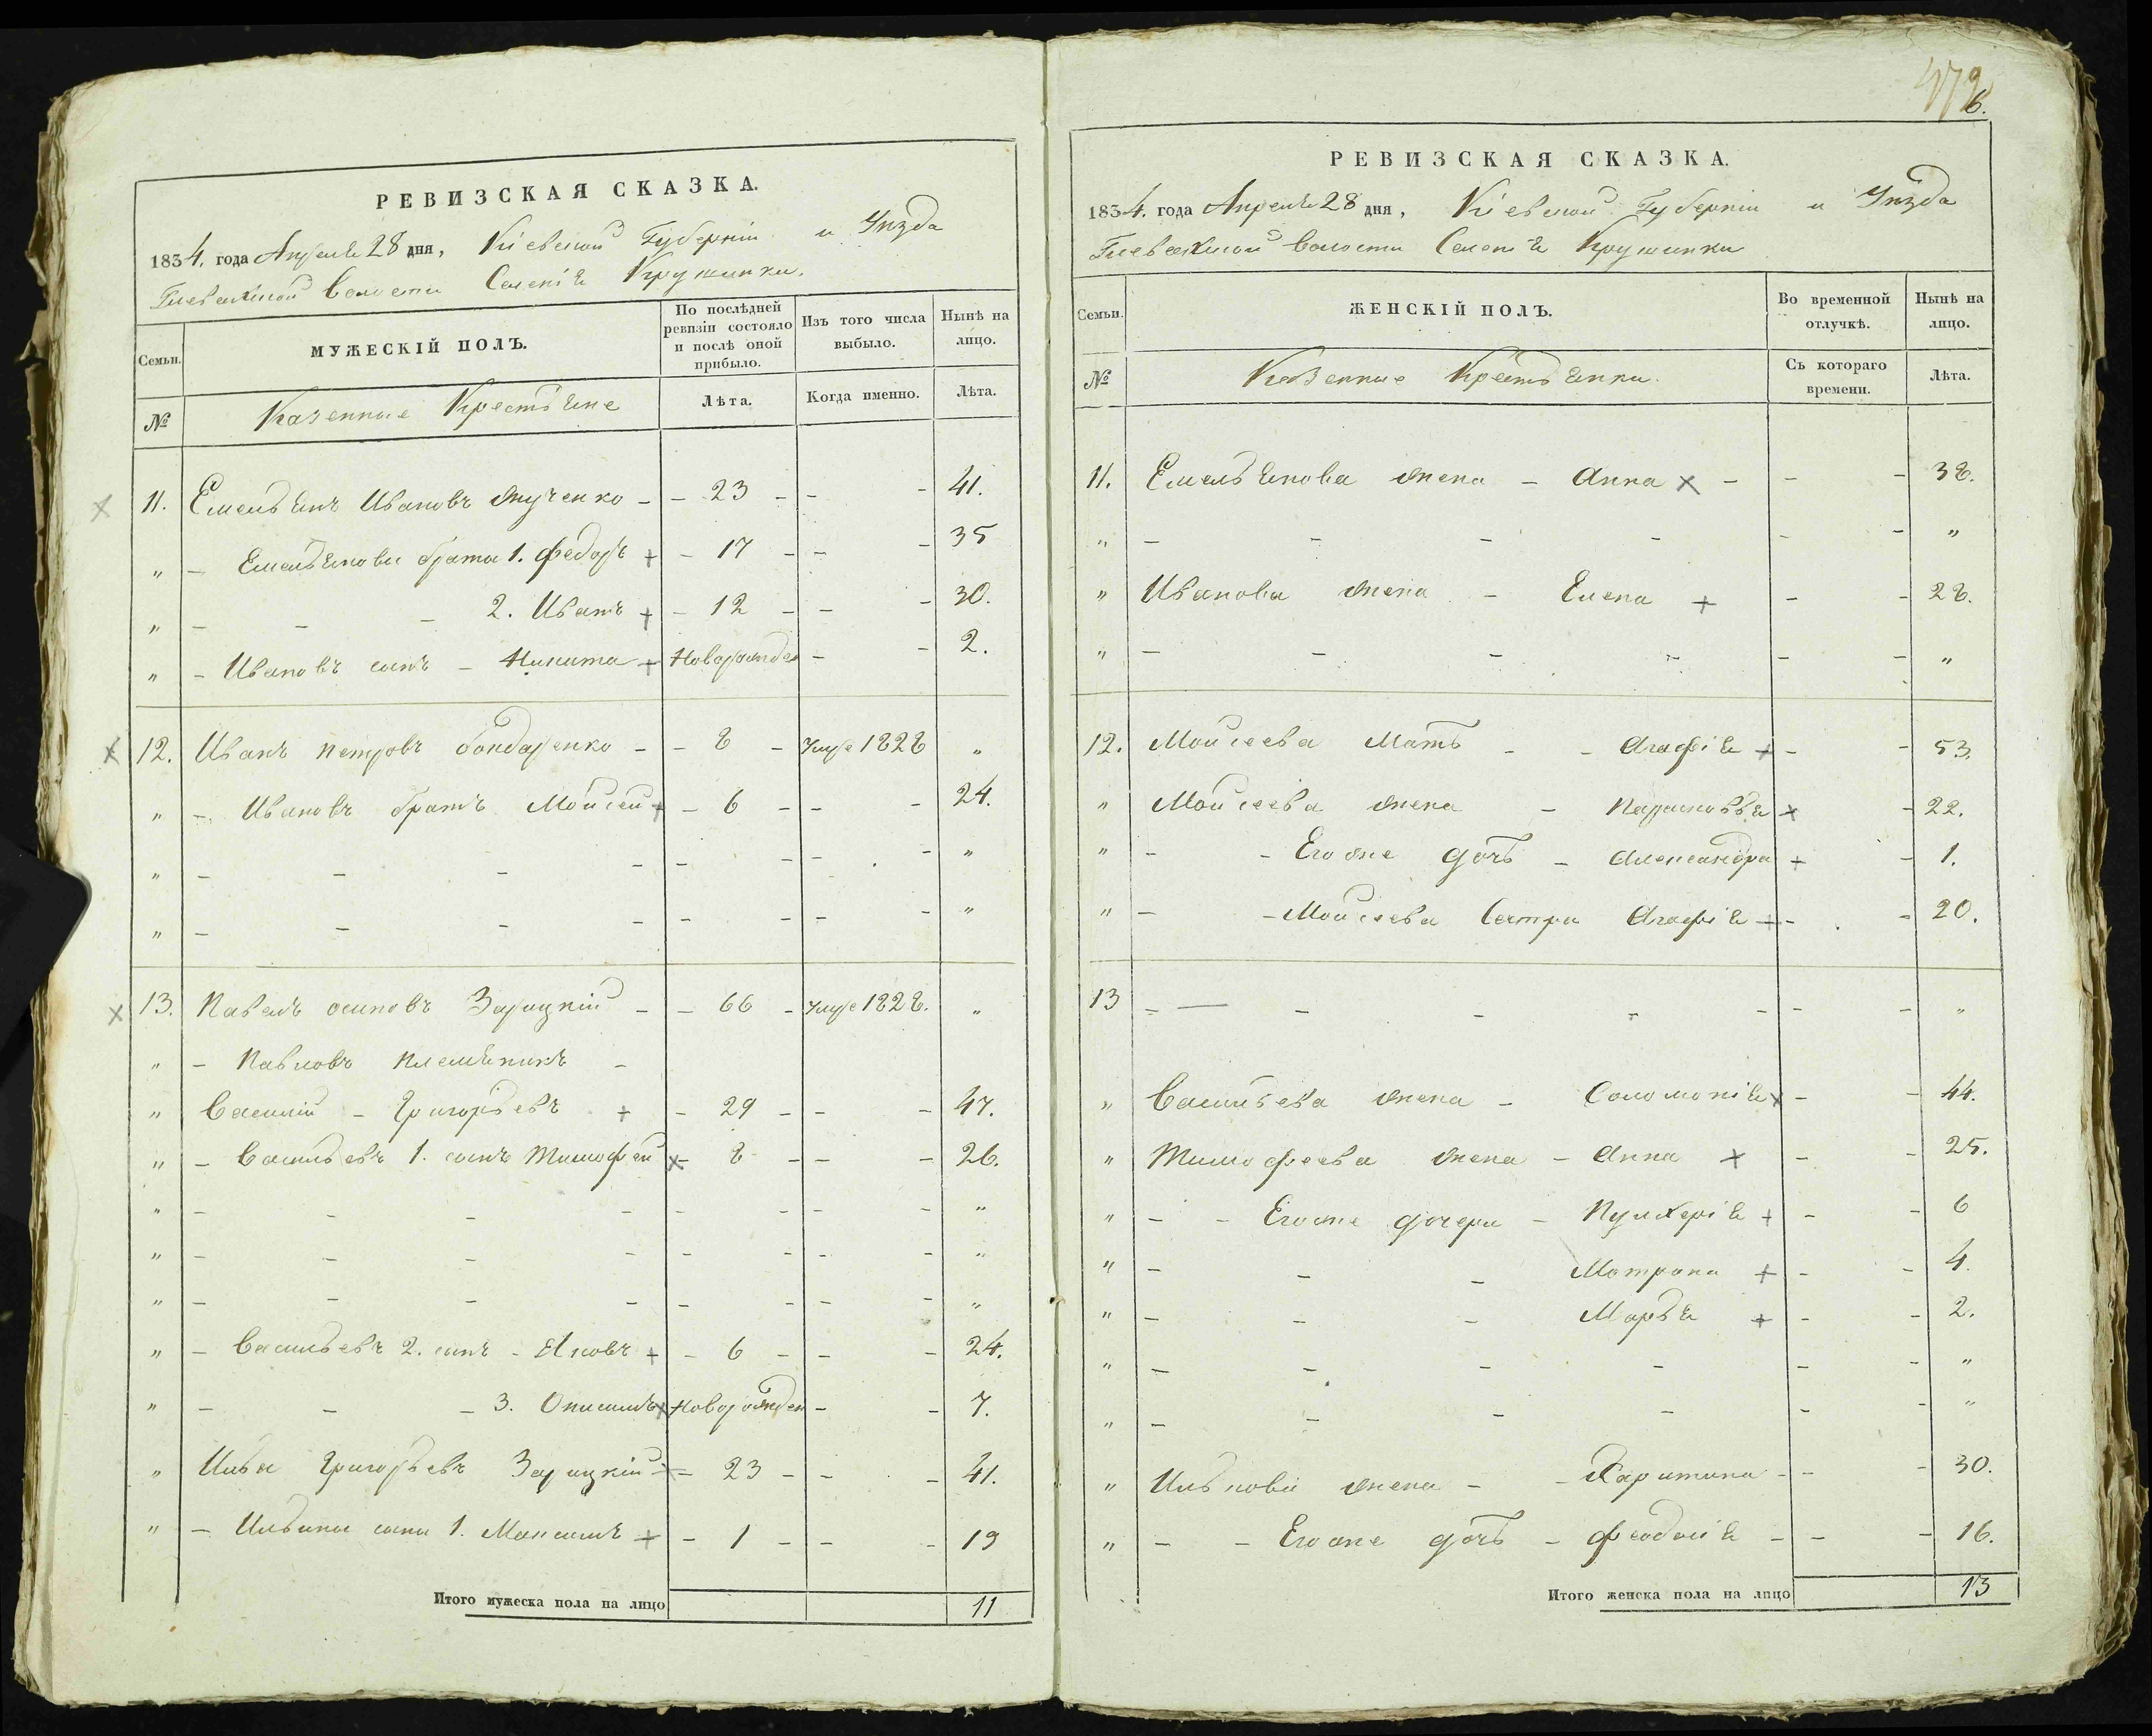 РЕВИЗСКАЯ СКАЗКА.
1834. года Апреля 28 дня, Кіевской Губерніи и Уѣзда
Глевахской Волости Селенія Кружинки.
Семьи. МУЖЕСКІЙ ПОЛЪ. По послѣдней ревизіи состояло и послѣ оной прибыло. Изъ того числа выбыло. Нынѣ на лицо.
№ Казенные Крестьяне Лѣта. Когда именно. Лѣта.
11. Емельянъ Ивановъ - - 23 - - - 41.
" - Емельяновы браты 1. Федоръ + - 17 - - - 35
" - - - 2. Иванъ + - 12 - - - 30.
" - Ивановъ сынъ - Никита + Новорожден - - 2.
12. Иванъ Петровъ Бондаренко - - 8 - Умре 1828 "
" - Ивановъ братъ Мойсей + - 6 - - - 24.
" - - - - - - - - "
" - - - - - - - - "
13. Павелъ Осиповъ Зарицкій - - 66 - Умре 1828. "
" - Павловъ Племяникъ -
" Василій - Григорьевъ + - 29 - - - 47.
" - Васильевъ 1. сынъ Тимофей х 8 - - - 26.
" - - - - - - - - "
" - - - - - - - - "
" - - - - - - - - "
" - Васильевъ 2. сынъ - Яковъ + - 6 - - - 24.
" - - - 3. Онисимъ х Новорожден - - 7.
" Илья Григорьевъ Зарицкій - 23 - - - 41.
" - Ильины сыны 1. Максимъ + - 1 - - - 19
Итого мужеска пола на лицо 11
6.
РЕВИЗСКАЯ СКАЗКА.
1834. года Апреля 28 дня, Кіевской Губерніи и Уѣзда
Глевахской Волости Селенія Кружинки
Семьи. ЖЕНСКІЙ ПОЛЪ. Во временной отлучкѣ. Нынѣ на лицо.
№ Казенные Крестьянки. Съ котораго времени. Лѣта.
11. Емельянова жена - Анна х - - - 38.
" - - - - - - "
" Иванова жена - Елена + - - 28.
" - - - - - - "
12. Мойсеева Мать - - Агафія + - - 53.
" Мойсеева жена - Парасковья х - 22.
" - - Его же дочь - Александра + - 1.
" - - Мойсеева Сестра Агафія + - - 20.
13 - - - - - - - - "
" Васильева жена - Соломонія х - - 44.
" Тимофеева жена - Анна + - - 25.
" - - Его же дочери - Пулхерія + - - 6
" - - - Матрона + - - 4.
" - - - Марья + - - 2.
" - - - - - - "
" - - - - - - "
" Илькова жена - - Харитина - - - 30.
" - - Его же дочь - Феодосія - - - 16.
Итого женска пола на лицо 13